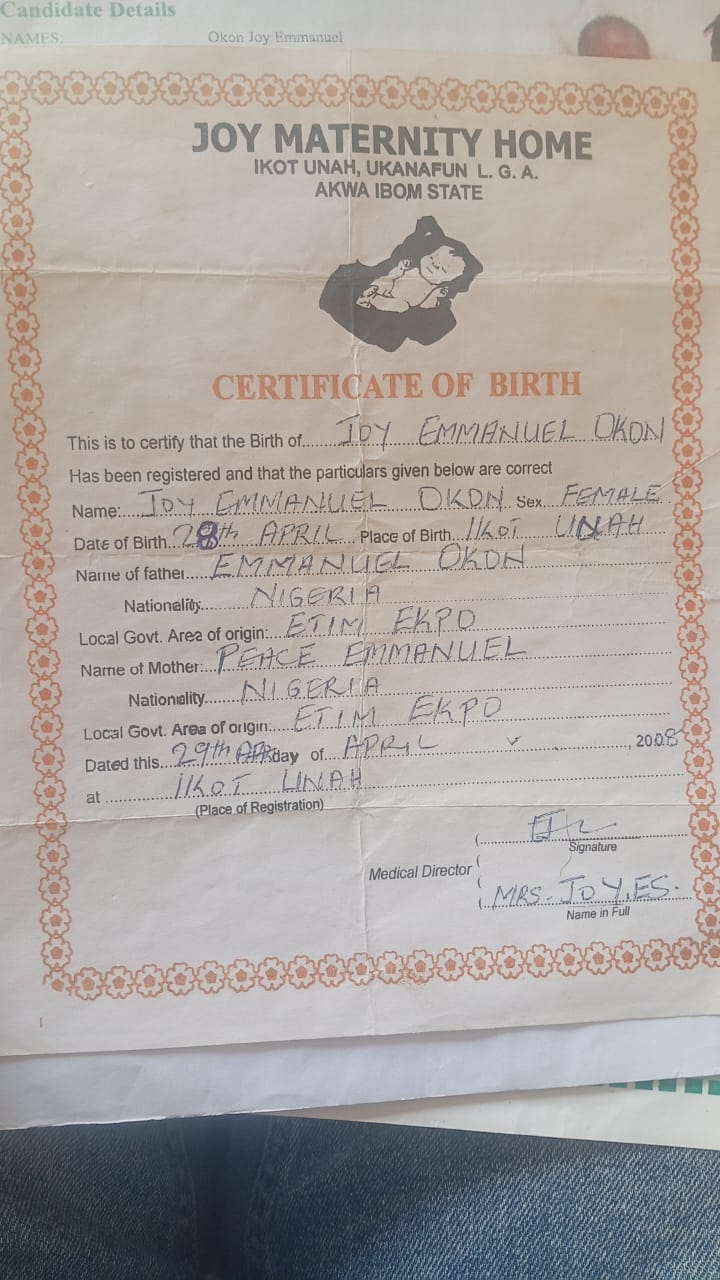 Candidate Details
NAMES: Okon Joy Emmanuel
JOY MATERNITY HOME
IKOT UNAH, UKANAFUN L. G. A.
AKWA IBOM STATE
CERTIFICATE OF BIRTH
This is to certify that the Birth of JOY EMMANUEL OKON
Has been registered and that the particulars given below are correct
Name: JOY EMMANUEL OKON Sex FEMALE
Date of Birth 28th APRIL Place of Birth IKOT UNAH
Name of father EMMANUEL OKON
Nationality NIGERIA
Local Govt. Area of origin: ETIM EKPO
Name of Mother: PEACE EMMANUEL
Nationality NIGERIA
Local Govt. Area of origin: ETIM EKPO
Dated this 29th day of APRIL, 2008
at IKOT UNAH
(Place of Registration)
Signature
Medical Director
MRS. JOY. ES.
Name in Full